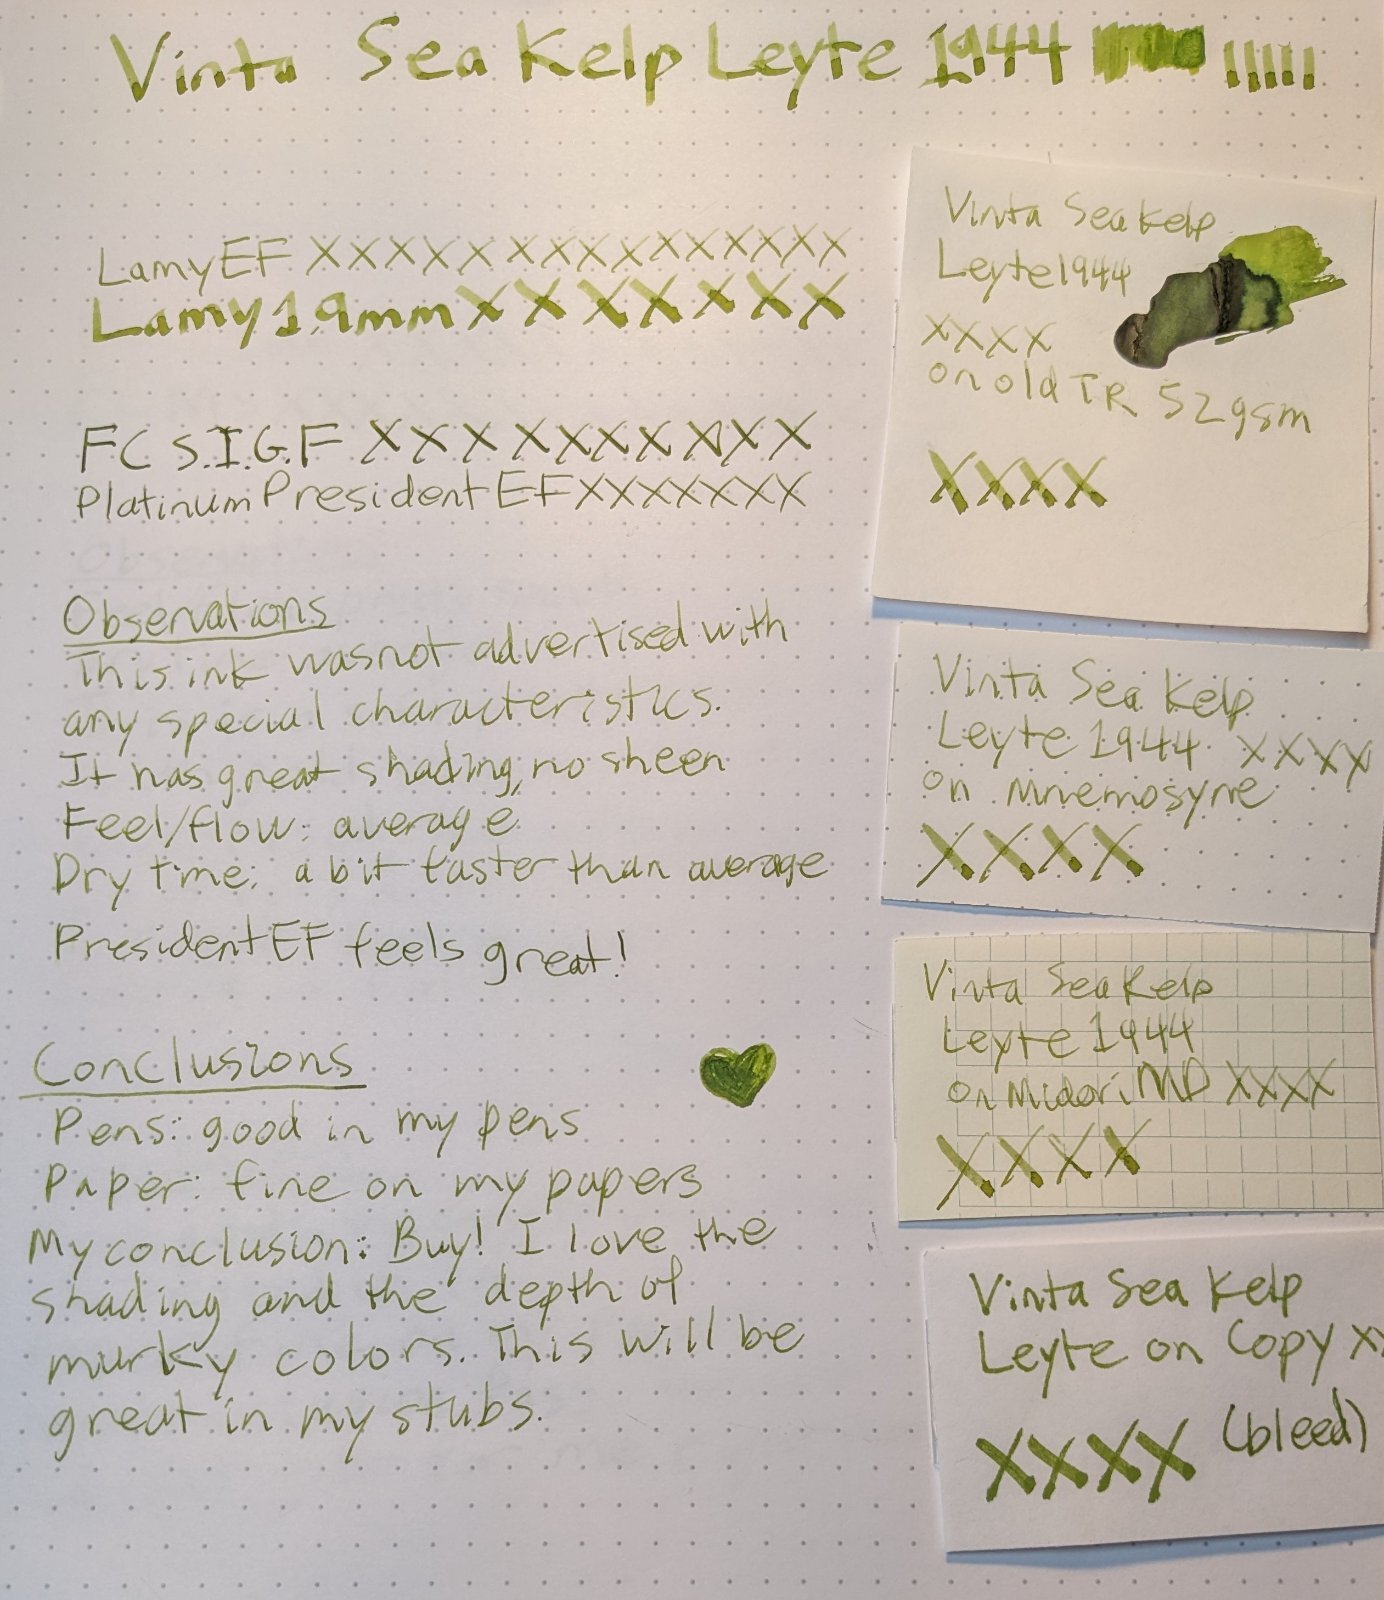 Vinta Sea Kelp Leyte 1944
Lamy EF XXXXXXXXXXXXXXXXX
Lamy 1.9mm XXXXXXXX
FC S.I.G.F XXXXXXXXXX
Platinum President EF XXXXXXX
Observations
This ink was not advertised with
any special characteristics.
It has great shading, no sheen
Feel/flow: average
Dry time: a bit faster than average
President EF feels great!
Conclusions
Pens: good in my pens
Paper: fine on my papers
My conclusion: Buy! I love the
shading and the depth of
murky colors. This will be
great in my stubs.
Vinta Sea Kelp
Leyte 1944
XXXX
on old TR 52gsm
XXXX
Vinta Sea Kelp
Leyte 1944 XXXX
on Mnemosyne
XXXX
Vinta Sea Kelp
Leyte 1944
on Midori MD XXXX
XXXX
Vinta Sea Kelp
Leyte on Copy XX
XXXX (bleed)